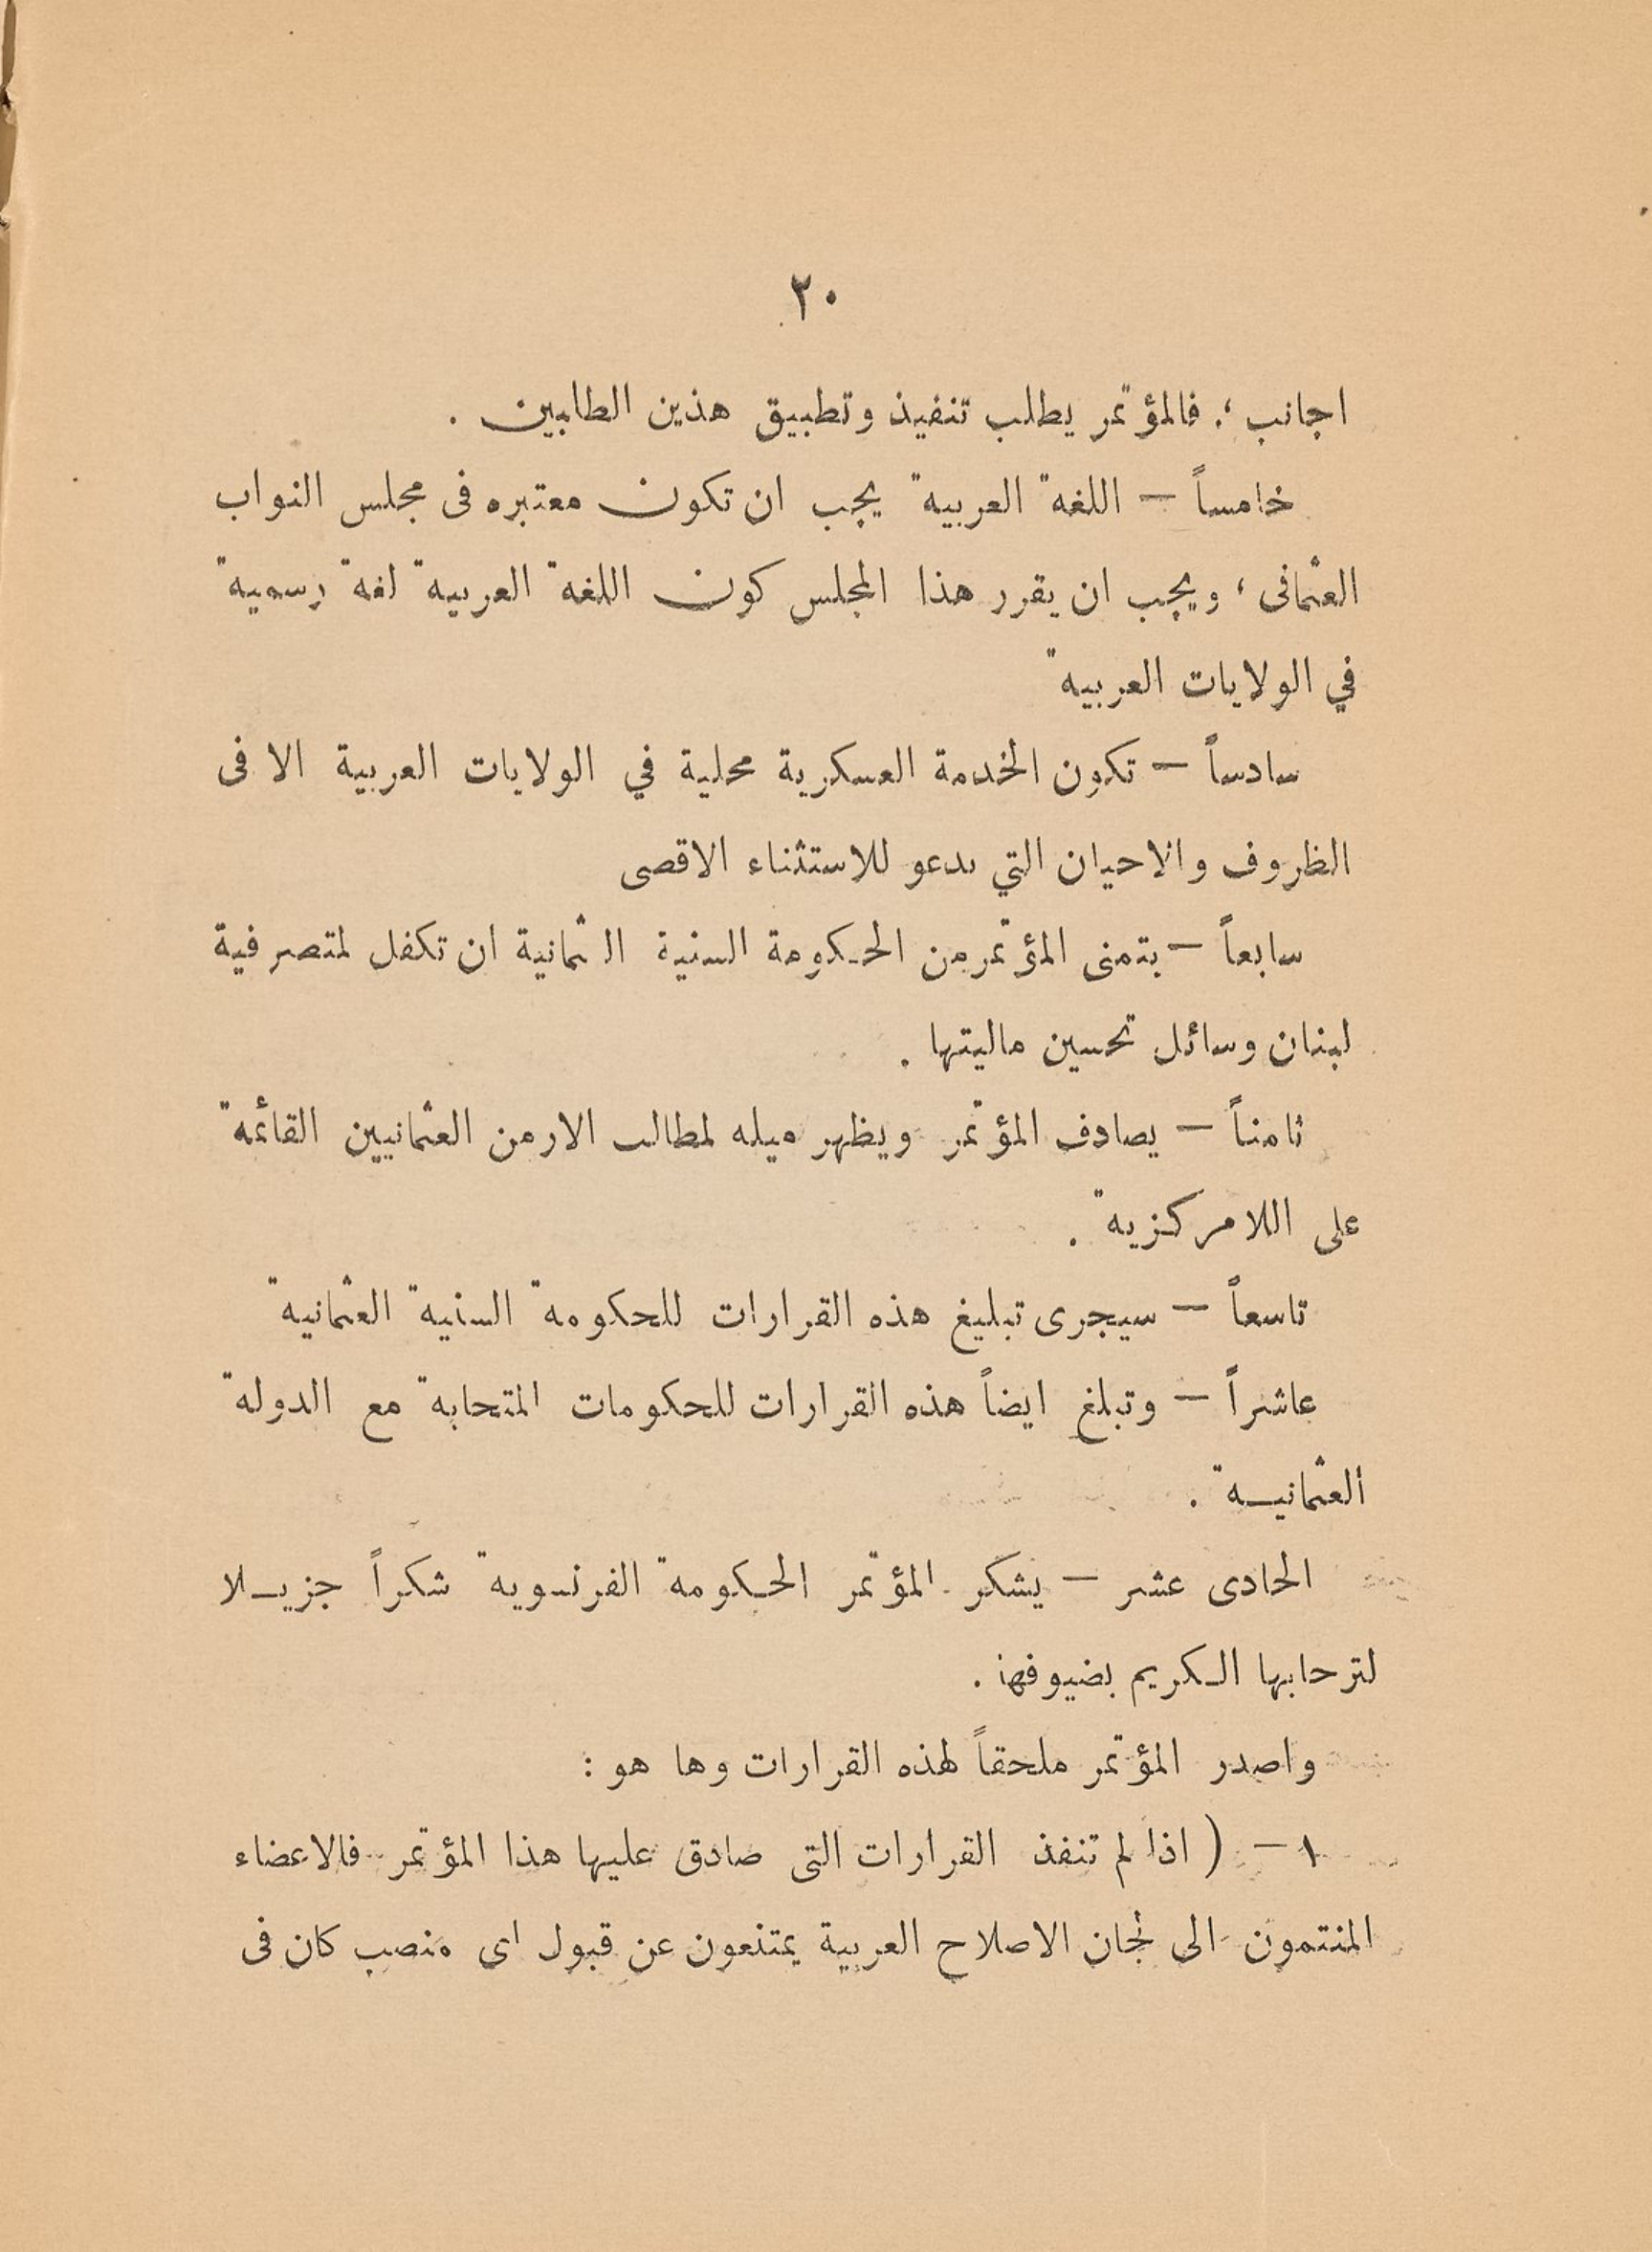 ٢٠
اجانب ؛ فالمؤتمر يطلب تنفيذ وتطبيق هذين الطلبين .
خامساً — اللغة العربية يجب ان تكون معتبره فى مجلس النواب
العثمانى ، ويجب ان يقرر هذا المجلس كون اللغة العربية لغة رسمية
في الولايات العربية
سادساً — تكون الخدمة العسكرية محلية في الولايات العربية الا فى
الظروف والاحيان التي تدعو للاستثناء الاقصى
سابعاً — يتمنى المؤتمر من الحكومة السنية الـثمانية ان تكفل لمتصرفية
لبنان وسائل تحسين ماليتها .
ثامناً — يصادف المؤتمر ويظهر ميله لمطالب الارمن العثمانيين القائمة
على اللامركزية .
تاسعاً — سيجرى تبليغ هذه القرارات للحكومة السنية العثمانية
عاشراً — وتبلغ ايضاً هذه القرارات للحكومات المتحابة مع الدولة
العثمانيـة .
الحادى عشر — يشكر المؤتمر الحكومة الفرنسوية شكراً جزيـلا
لترحابها الكريم بضيوفها .
واصدر المؤتمر ملحقاً لهذه القرارات وها هو :
١ — ( اذا لم تنفذ القرارات التى صادق عليها هذا المؤتمر فالاعضاء
المنتمون الى لجان الاصلاح العربية يمتنعون عن قبول اى منصب كان فى